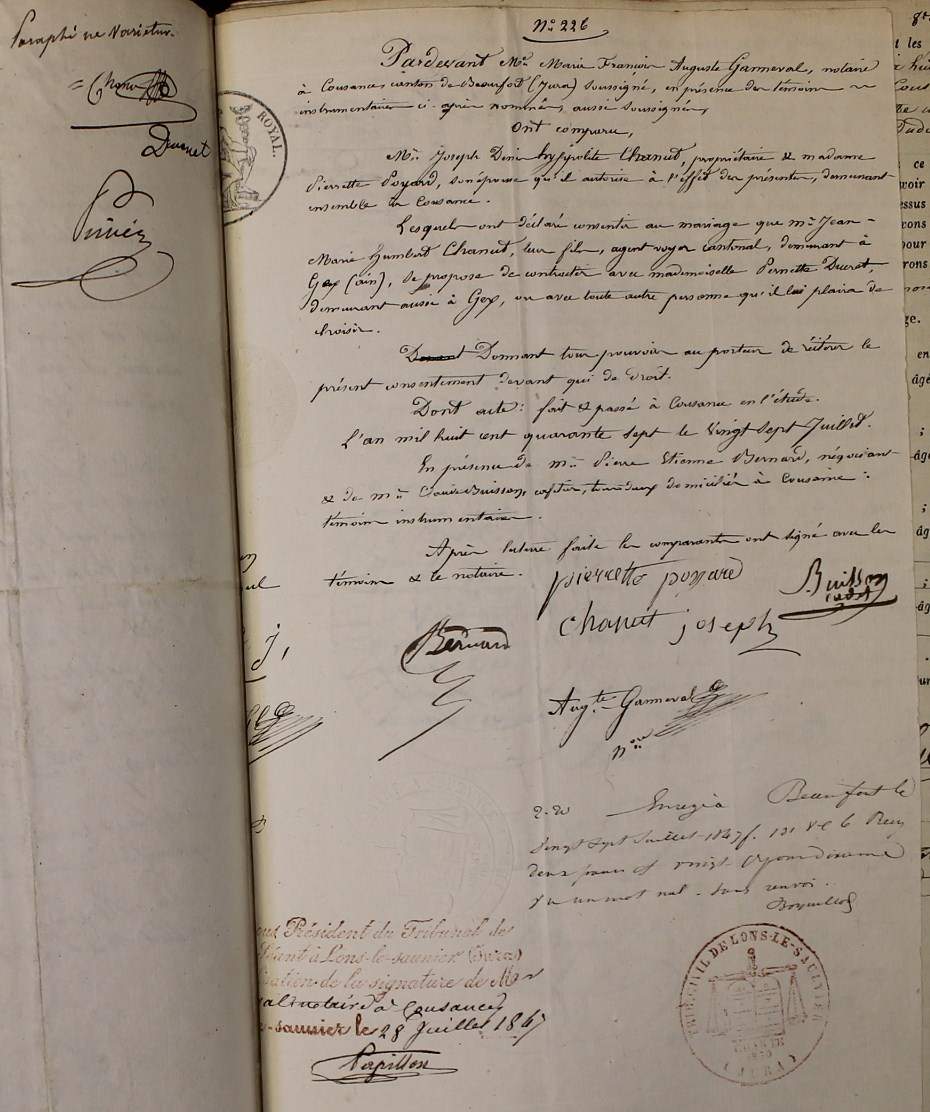 Paraphé ne Varietur.
Ducret
ROYAL.
No. 226
Pardevant Me. Marie François Auguste Ganneval, notaire
à Cousance, canton de Beaufort (Jura) soussigné, en présence des témoins
instrumentaires ci-après nommés, aussi soussignés,
Ont comparu,
Mr. Joseph Denis hyppolite Chanut, propriétaire & madame
Pierrette Poyard, son épouse qu'il autorise à l'effet des présentes, demeurant
ensemble à Cousance.
Lesquels ont déclaré consentir au mariage que mr. Jean-
Marie Humbert Chanut, leur fils, agent voyer cantonal, demeurant à
Gex (ain), se propose de contracter avec mademoiselle Pernette Ducret,
demeurant aussi à Gex, ou avec toute autre personne qu'il lui plaira de
choisir.
Donnant tous pouvoirs au porteur de réitérer le
présent consentement devant qui de droit.
Dont acte: fait & passé à Cousance en l'étude.
L'an mil huit cent quarante sept le Vingt sept Juillet.
En présence de mrs. Pierre Etienne Bernard, négociant
& de mr. Buisson, cafetier, tous deux domiciliés à Cousance:
témoins instrumentaires.
Après lecture faite les comparants ont signé avec les
témoins & le notaire.
pierrette poyard
Buisson
cadet
Chanut joseph
Bernard
Augte. Ganneval
nre
Enregé à Beaufort le
Vingt sept Juillet 1847 f. 131 Vo C 6 Reçu
deux francs et vingt centimes pour dixième
un mot nul sans renvoi.
Président du Tribunal de
à Lons-le-saunier (Jura)
de la signature de Mr
notaire à Cousance
-saunier le 28 Juillet 1847
Papillon
TRIB. CIVIL DE LONS-LE-SAULNIER
CHARTE
1830
(JURA)